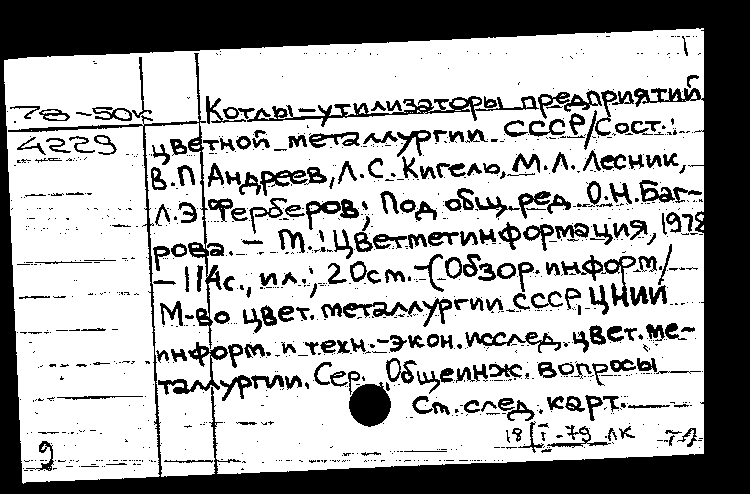 78-50к Котлы-утилизаторы предприятий
4229 цветной металлургии СССР/Сост.:
В.П.Андреев, Л.С.Кигель, М.Л.Лесник,
Л.Э.Ферберов; Под общ.ред. О.Н.Баг-
рова. – М.: Цветметинформация, 1978
– 114с., ил.; 20см. – (Обзор. информ./
М-во цвет. металлургии СССР, ЦНИИ
информ. и техн.-экон. исслед. цвет. ме-
таллургии. Сер. „Общеинж. вопросы
См. след. карт.
18/I-79 ЛК
9